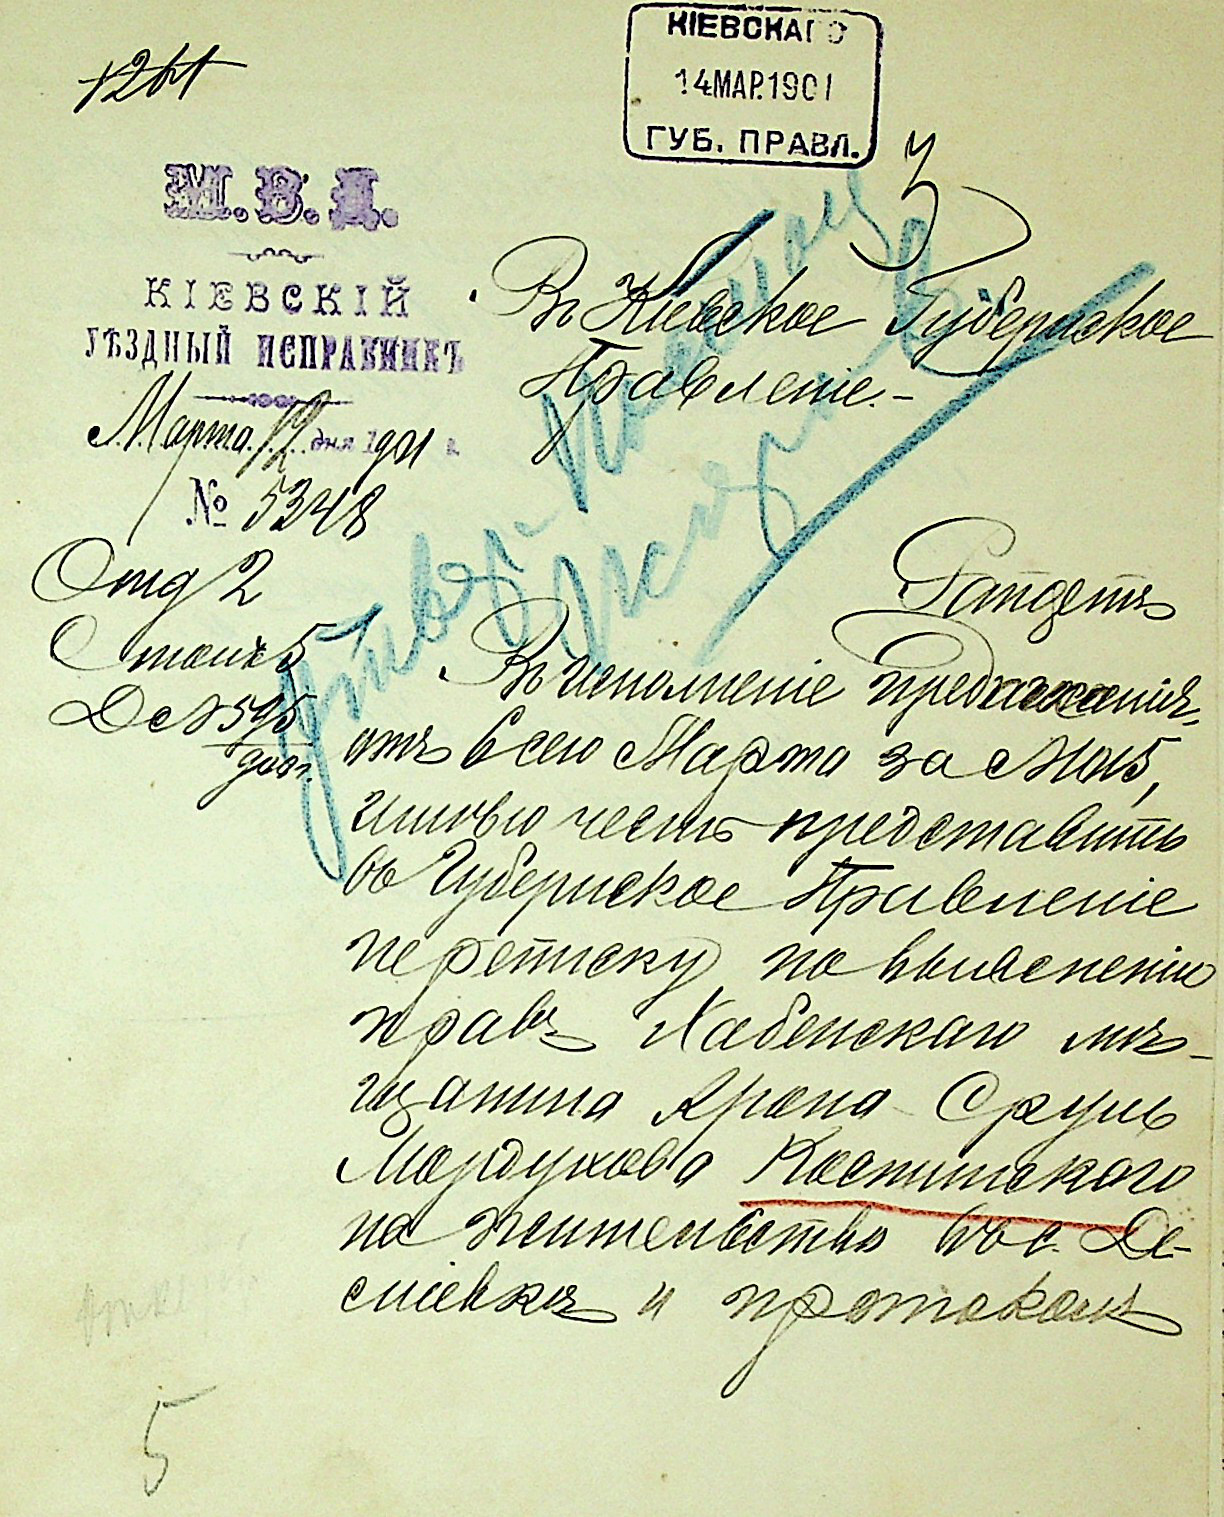 1261
КІЕВСКАГО
14 МАР. 1901
ГУБ. ПРАВЛ.
М. В. Д.
КІЕВСКІЙ
УѢЗДНЫЙ ИСПРАВНИКЪ
Марта 12 дня 1901 г.
№ 5348
Отд 2
Столъ 5
Въ Кіевское Губернское
Правленіе.-
Рапортъ
Въ исполненіе предписанія
отъ 6 сего Марта за № 1015,
имѣю честь представить
въ Губернское Правленіе
переписку по выясненію
правъ Хабенскаго мѣ-
щанина Арона-Сруль
Мордухова Костинскаго
на жительство въ с. Де-
міевкѣ и протоколъ
5